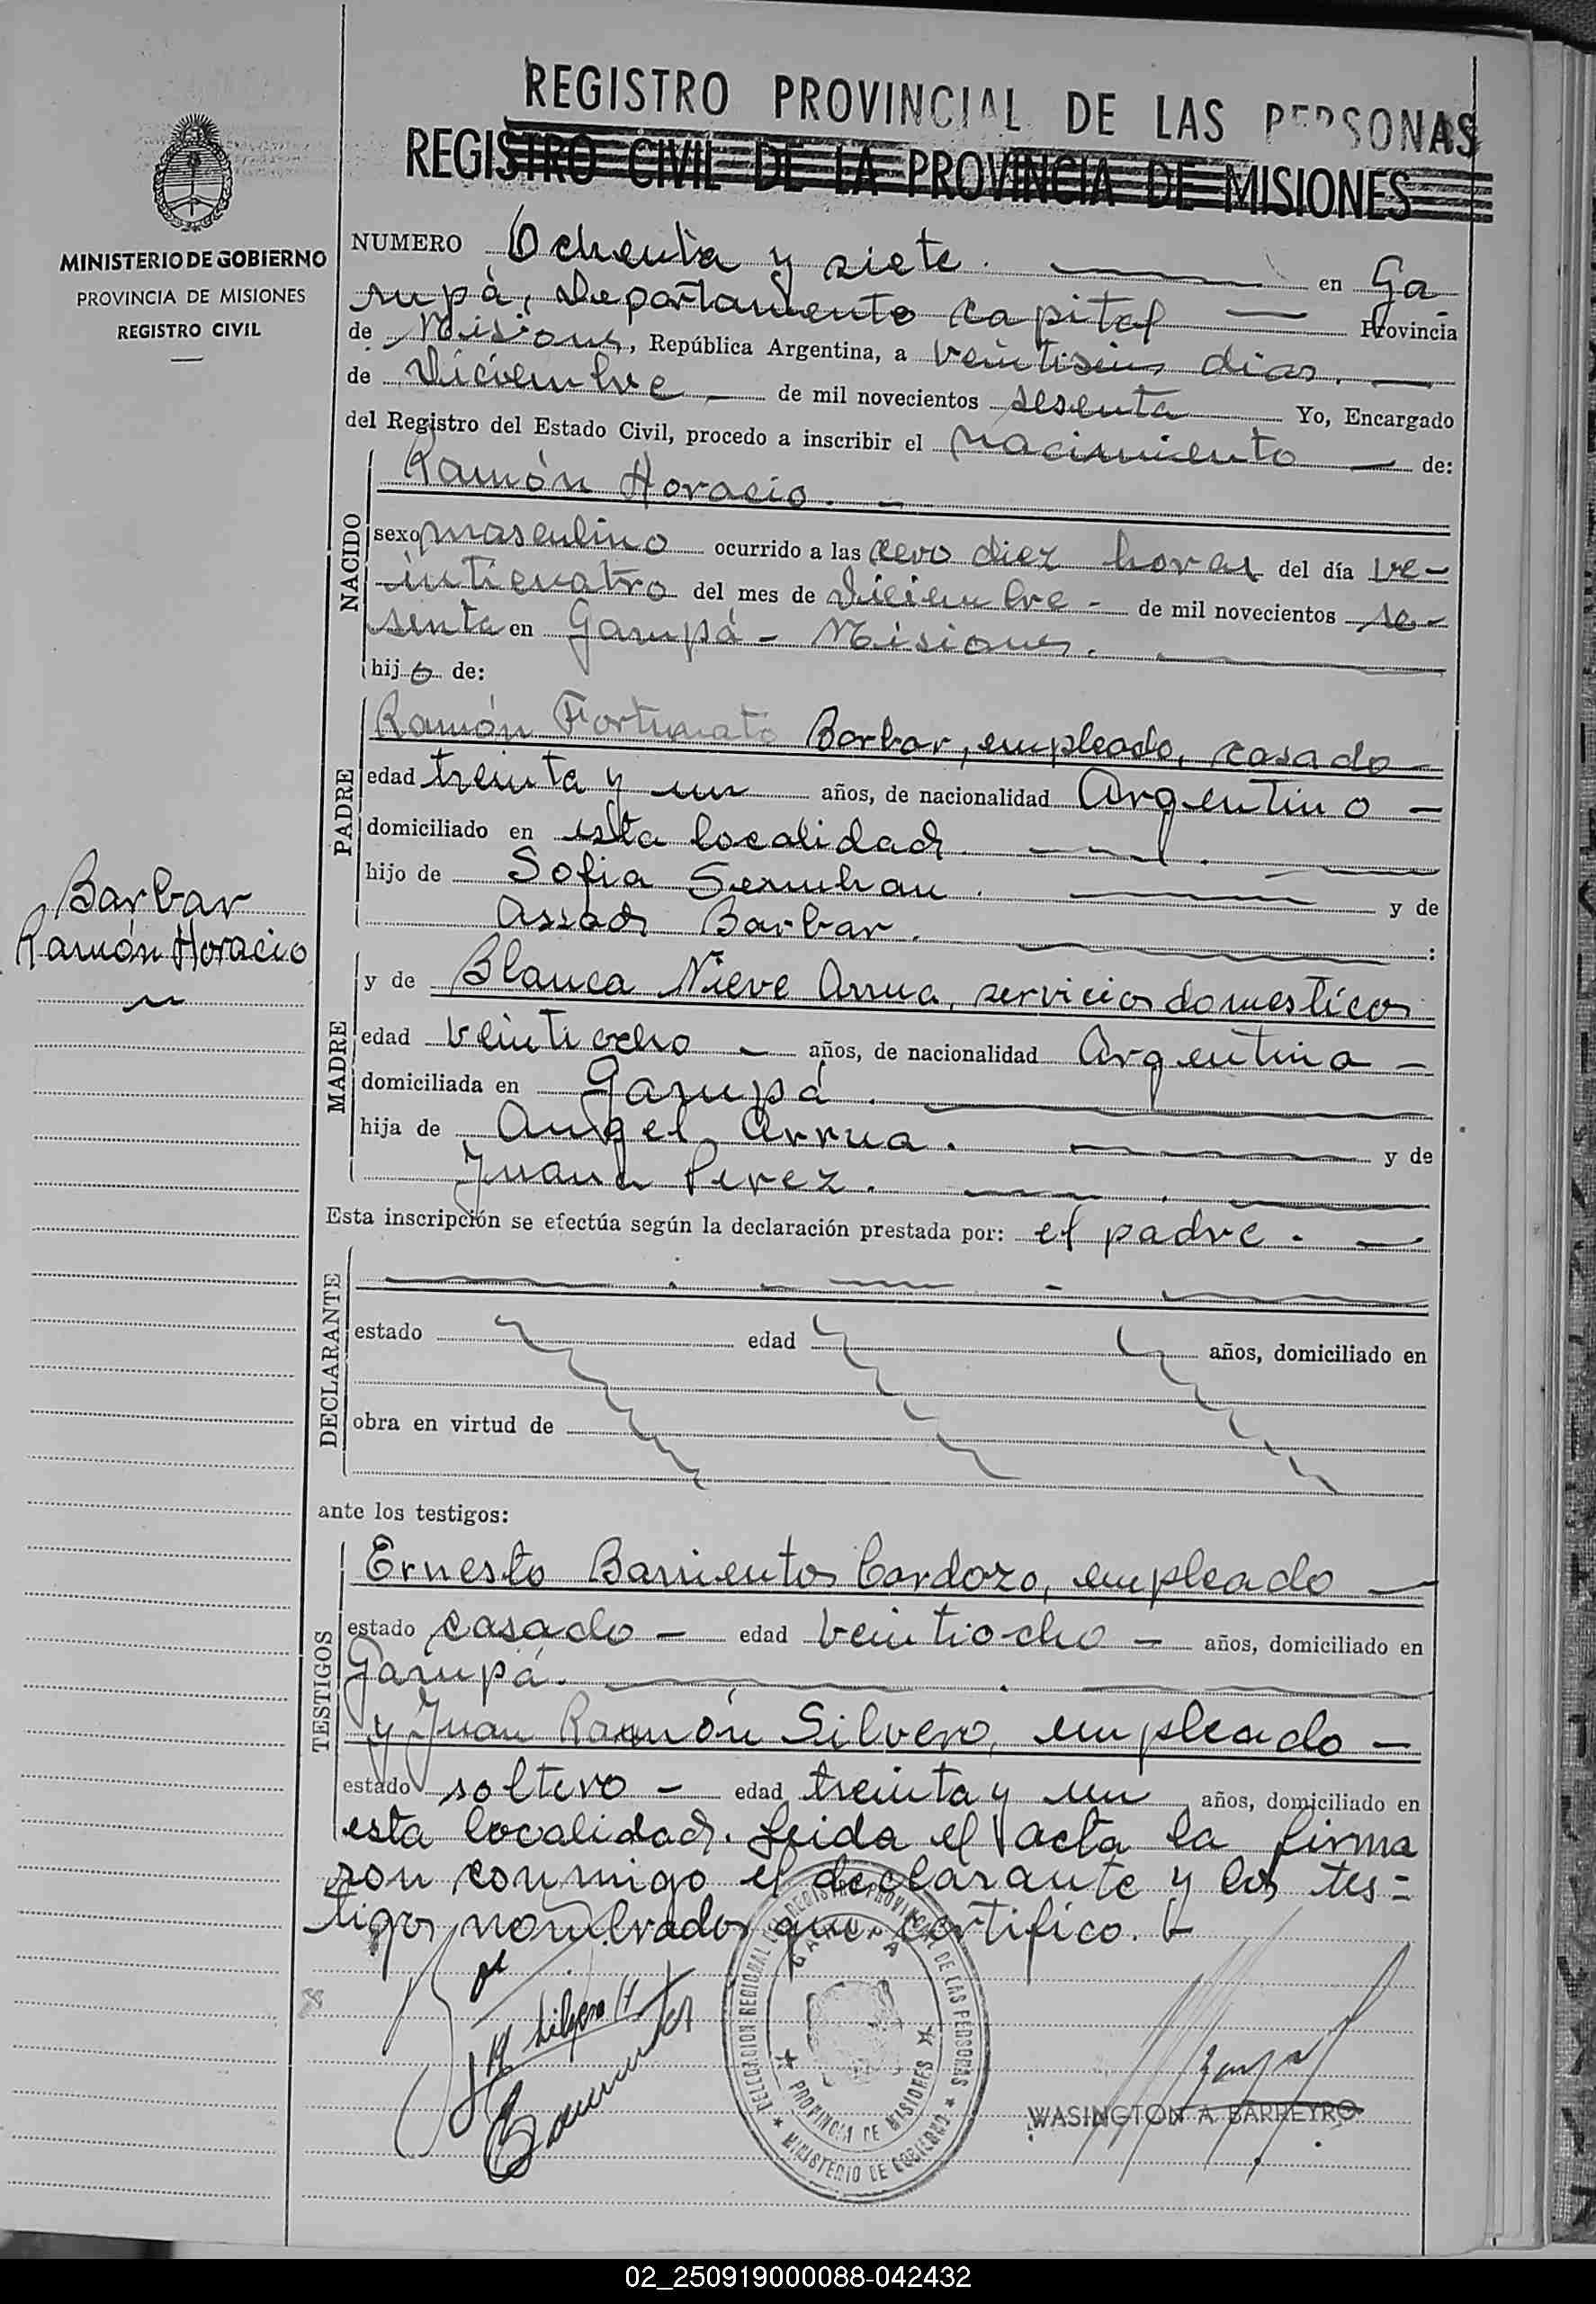 REGISTRO PROVINCIAL DE LAS PERSONAS
REGISTRO CIVIL DE LA PROVINCIA DE MISIONES
MINISTERIO DE GOBIERNO
PROVINCIA DE MISIONES
REGISTRO CIVIL
NUMERO Ochenta y siete. en Ga
rupá, Departamento Capital Provincia
de Misiones, República Argentina, a veintiseis dias.
de Diciembre de mil novecientos sesenta Yo, Encargado
del Registro del Estado Civil, procedo a inscribir el nacimiento de:
NACIDO
Ramón Horacio.
sexo masculino ocurrido a las cero diez horas del día ve-
inticuatro del mes de Diciembre - de mil novecientos se-
senta en Garupá - Misiones.
hijo de:
PADRE
Ramón Fortunato Barbar, empleado, casado
edad treinta y un años, de nacionalidad Argentino
domiciliado en esta localidad.
hijo de Sofia y de
Assad Barbar. :
Barbar
Ramón Horacio
MADRE
y de Blanca Nieve Arrua, servicios domesticos
edad veintiocho años, de nacionalidad Argentina
domiciliada en Garupá.
hija de Angel Arrua. y de
Juana Perez.
Esta inscripción se efectúa según la declaración prestada por: el padre.
DECLARANTE
estado edad años, domiciliado en
obra en virtud de
ante los testigos:
TESTIGOS
Ernesto Barrientos Cardozo, empleado
estado casado - edad veintiocho - años, domiciliado en
Garupá.
y Juan Ramón Silvero, empleado -
estado soltero - edad treinta y un años, domiciliado en
esta localidad. Leida el acta la firma
ron conmigo el declarante y los tes=
tigos nombrados que certifico.
DELEGACION REGIONAL DEL REGISTRO PROVINCIAL DE LAS PERSONAS
GARUPA
PROVINCIA DE MISIONES
MINISTERIO DE GOBIERNO
WASINGTON A. BARREYRO
02_250919000088-042432